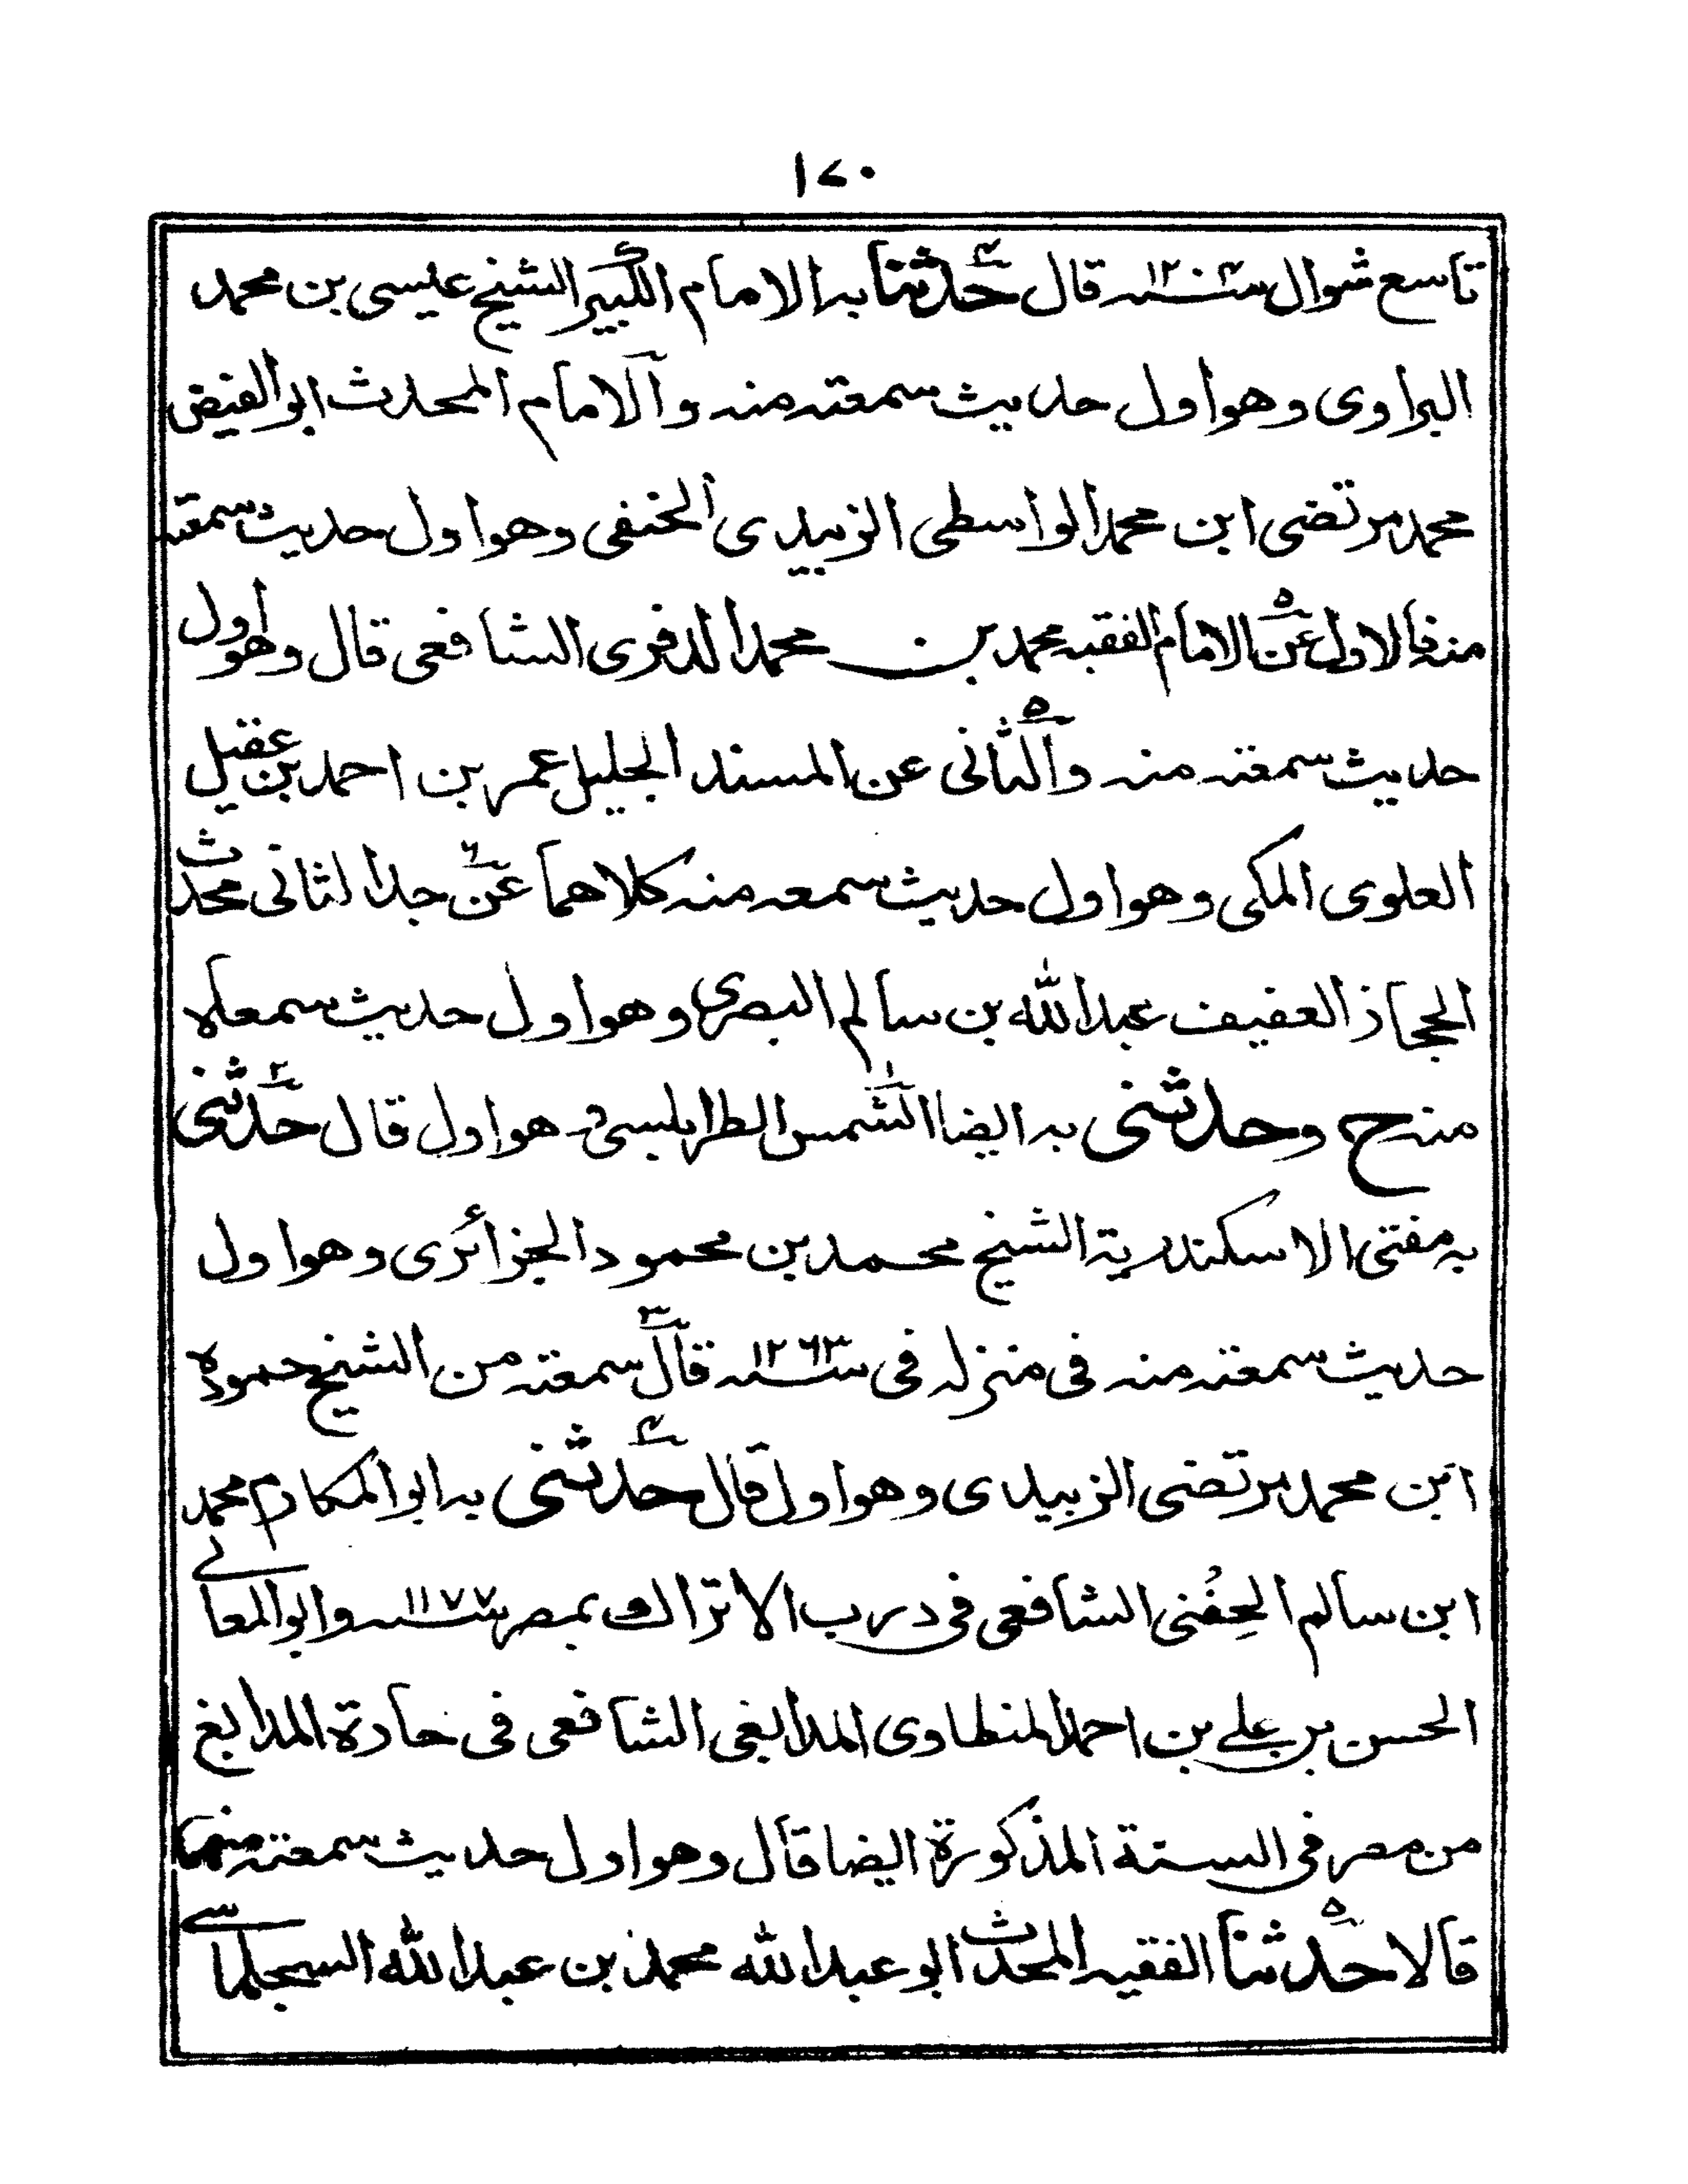 ١٧٠
تاسع شوال سنة ١٢٠٤ قال حدثنا به الامام الكبير الشيخ عيسى بن محمد
البراوى وهو اول حديث سمعته منه والامام المحدث ابو الفيض
محمد مرتضى ابن محمد الواسطى الزبيدى الحنفى وهو اول حديث سمعته
منه فالاول عن الامام الفقيه محمد بن محمد الدفرى الشافعى قال وهو اول
حديث سمعته منه والثانى عن المسند الجليل عمر بن احمد بن عقيل
العلوى المكى وهو اول حديث سمعه منه كلاهما عن جد الثانى محدث
الحجاز العفيف عبد الله بن سالم البصرى وهو اول حديث سمعاه
منه ح وحدثنى به ايضا الشمس الطرابلسى وهو اول قال حدثنى
به مفتى الاسكندرية الشيخ محمد بن محمود الجزائرى وهو اول
حديث سمعته منه فى منزله فى سنة ١٢٦٣ قال سمعته من الشيخ حموده
ابن محمد مرتضى الزبيدى وهو اول قال حدثنى به ابو المكارم محمد
ابن سالم الحِفُنى الشافعى فى درب الاتراك بمصر سنة ١١٧٧ وابو المعالے
الحسن بن علے بن احمد المنطاوى المدابغى الشافعى فى حارة المدابغ
من مصر فى السنة المذكورة ايضا قال وهو اول حديث سمعته منهما
قالا حدثنا الفقيه المحدث ابو عبد الله محمد بن عبد الله السجلماسے